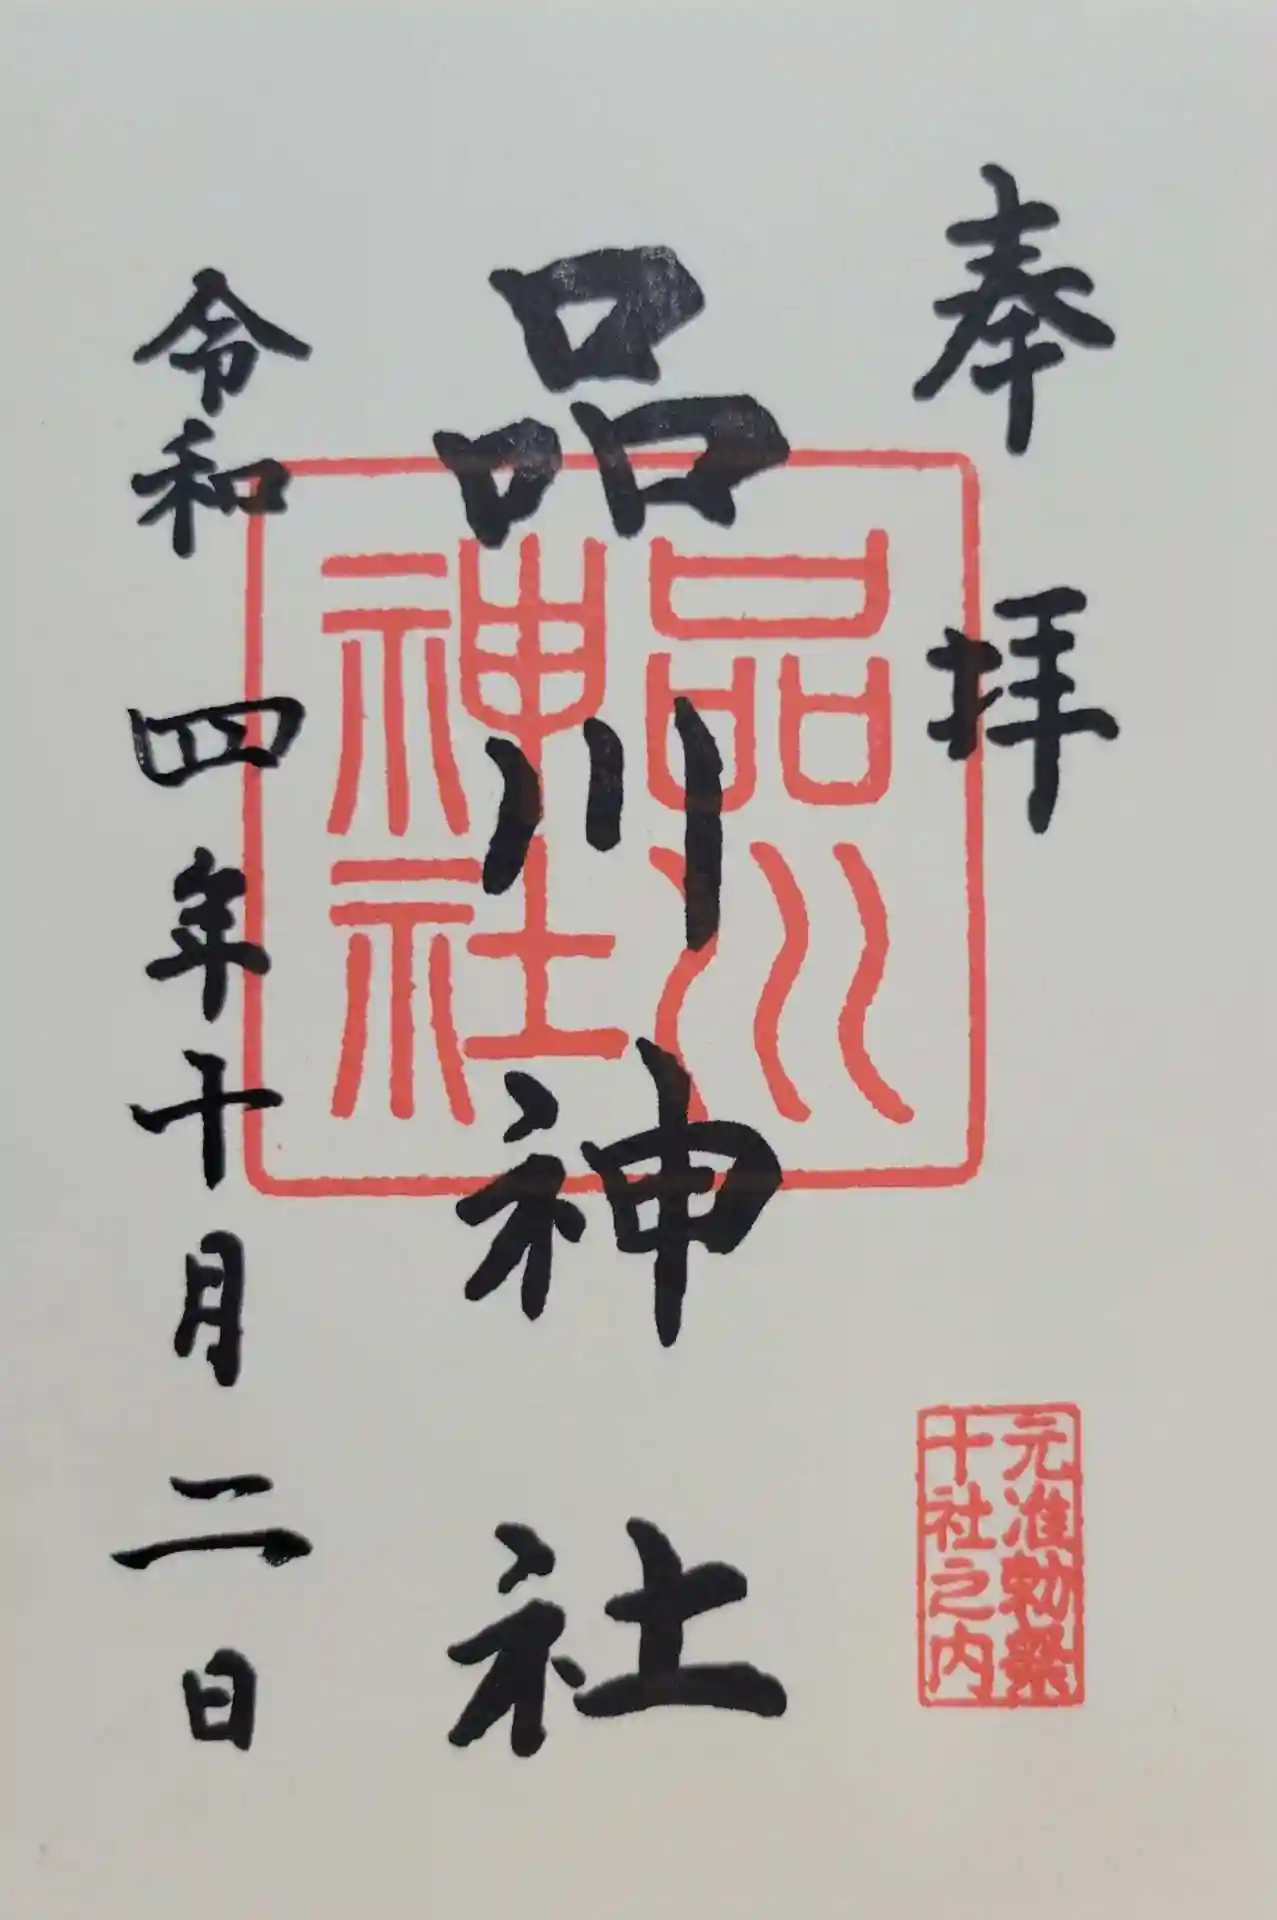 奉拝
元准勅祭
十社之内
品川神社
品川
神社
令和四年十月二日